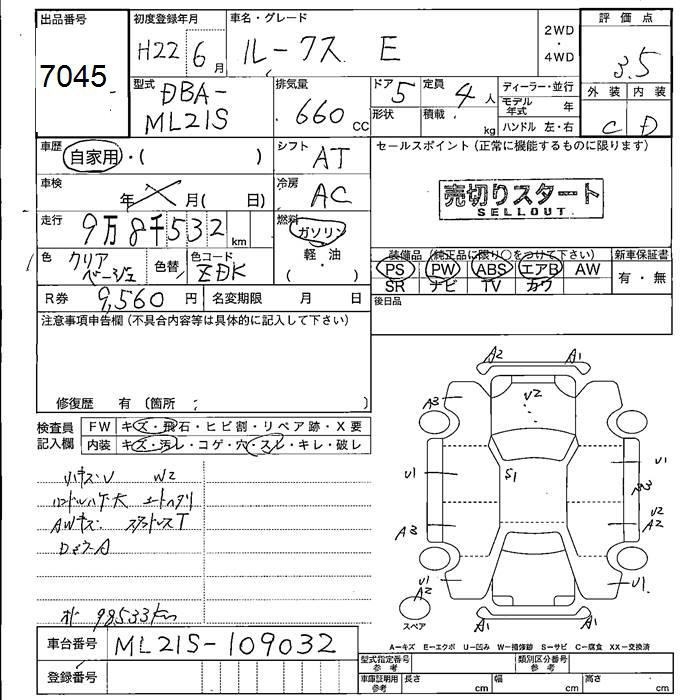 出品番号 初度登録年月 車名・グレード 評価点
7045 H22 6月 ルークス E 2WD・4WD 3.5
型式 排気量 ドア 定員 ディーラー・並行 外装 内装
DBA-ML21S 660cc 5 4人 C D
形状 積載 kg モデル年式 年 ハンドル 左・右
車歴 自家用・( ) シフト AT セールスポイント (正常に機能するものに限ります)
車検 年 月( 日) 冷房 AC 売切りスタート
SELLOUT.
走行 9万8千532km 燃料 ガソリン
軽・油
( )
色 クリアベージュ 色替 色コード ZDK
装備品 (純正品に限り○をつけて下さい) 新車保証書
PS PW ABS エアB AW 有・無
SR ナビ TV カワ
R券 9,560円 名変期限 月 日 後日品
注意事項申告欄 (不具合内容等は具体的に記入して下さい)
修復歴 有 (箇所 )
検査員記入欄 FW キズ・飛石・ヒビ割・リペア跡・X要
内装 キズ・汚レ・コゲ・穴・スレ・キレ・破レ
小キズ・U W2
ハンドルハゲ大 シートヘタリ
AWキズ スタッドレスT
98533km
A2 A1
A3 U2
U1 S1 U1
U2
A3 A2
U1 U1
A2
スペア A1 A1
車台番号 ML21S-109032
登録番号
A-キズ E-エクボ U-凹み W-補修跡 S-サビ C-腐食 XX-交換済
型式指定番号 参考 類別区分番号 参考
車庫証明用 参考 長さ cm 幅 cm 高さ cm